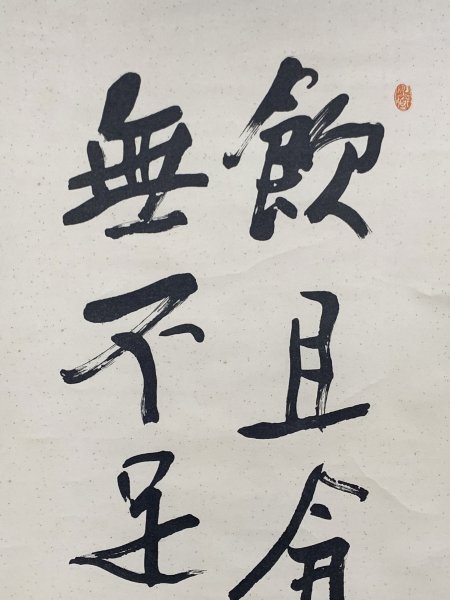 飲且食
無不足